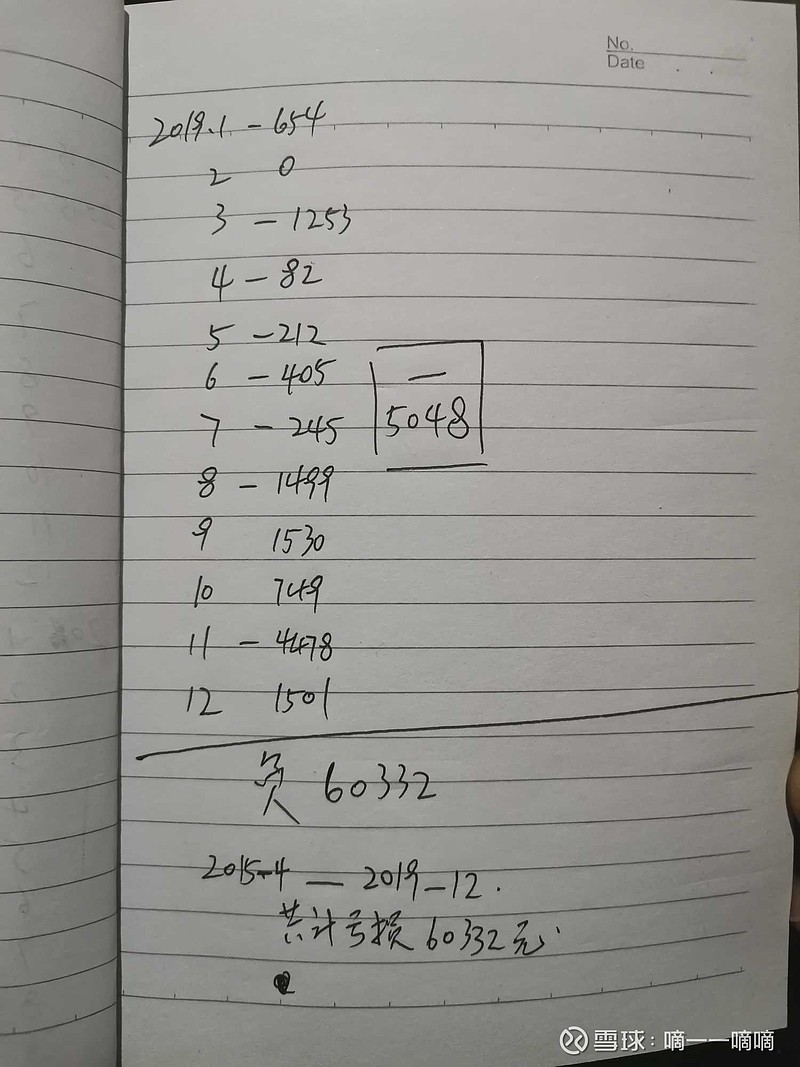 No.
Date
2019.1 -654
2 0
3 -1253
4 -82
5 -212
6 -405
7 -245
8 -1499
9 1530
10 749
11 -4478
12 1501
—
5048
负 60332
2015.4 — 2019-12.
共计亏损 60332元
雪球：嘀一一嘀嘀